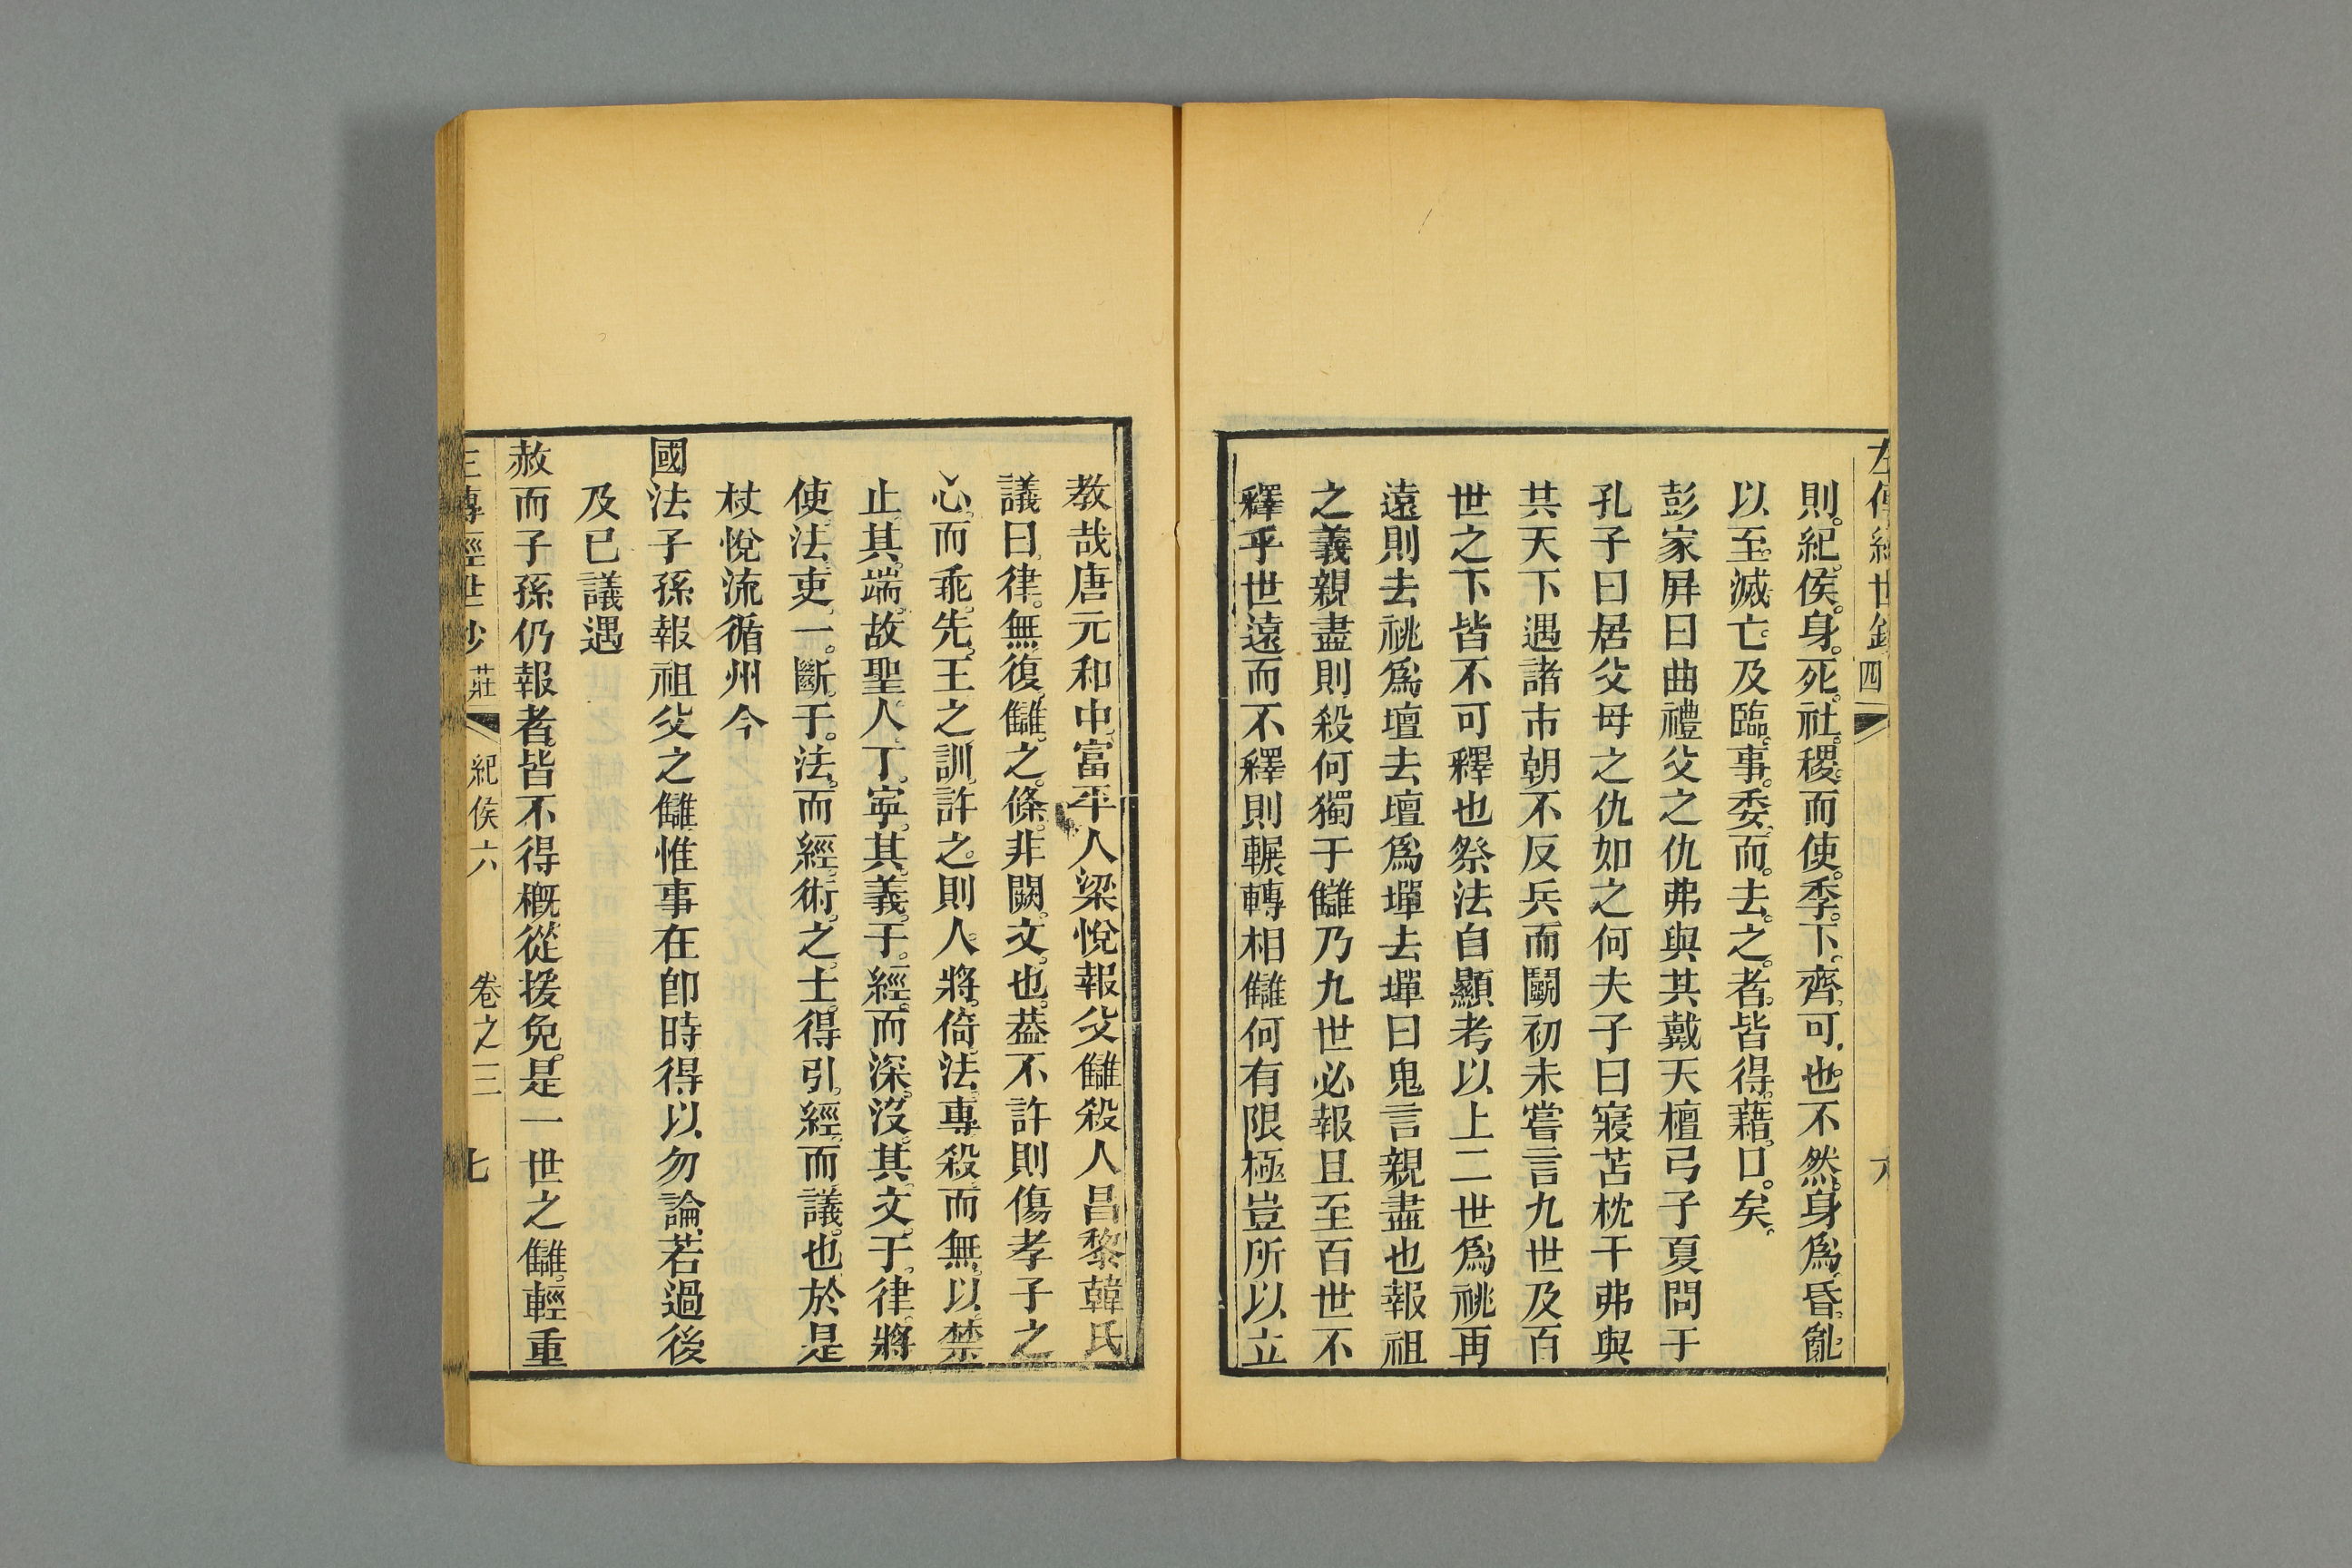 左傳經世鈔 四
則紀侯身死社稷而使季下齊可也不然身爲昏亂
以至滅亡及臨事委而去之者皆得藉口矣
彭家屏曰曲禮父之仇弗與共戴天檀弓子夏問于
孔子曰居父母之仇如之何夫子曰寢苫枕干弗與
共天下遇諸市朝不反兵而鬭初未嘗言九世及百
世之下皆不可釋也祭法自顯考以上二世爲祧再
遠則去祧爲壇去壇爲墠去墠曰鬼言親盡也報祖
之義親盡則殺何獨于讎乃九世必報且至百世不
釋乎世遠而不釋則輾轉相讎何有限極豈所以立
教哉唐元和中富平人梁悅報父讎殺人昌黎韓氏
議曰律無復讎之條非闕文也葢不許則傷孝子之
心而乖先王之訓許之則人將倚法專殺而無以禁
止其端故聖人丁寧其義于經而深沒其文于律將
使法吏一斷于法而經術之士得引經而議也於是
杖悅流循州今
國法子孫報祖父之讎惟事在卽時得以勿論若過後
及已議遇
赦而子孫仍報者皆不得概從援免是一世之讎輕重
左傳經世鈔 莊 紀侯六 卷之三 七